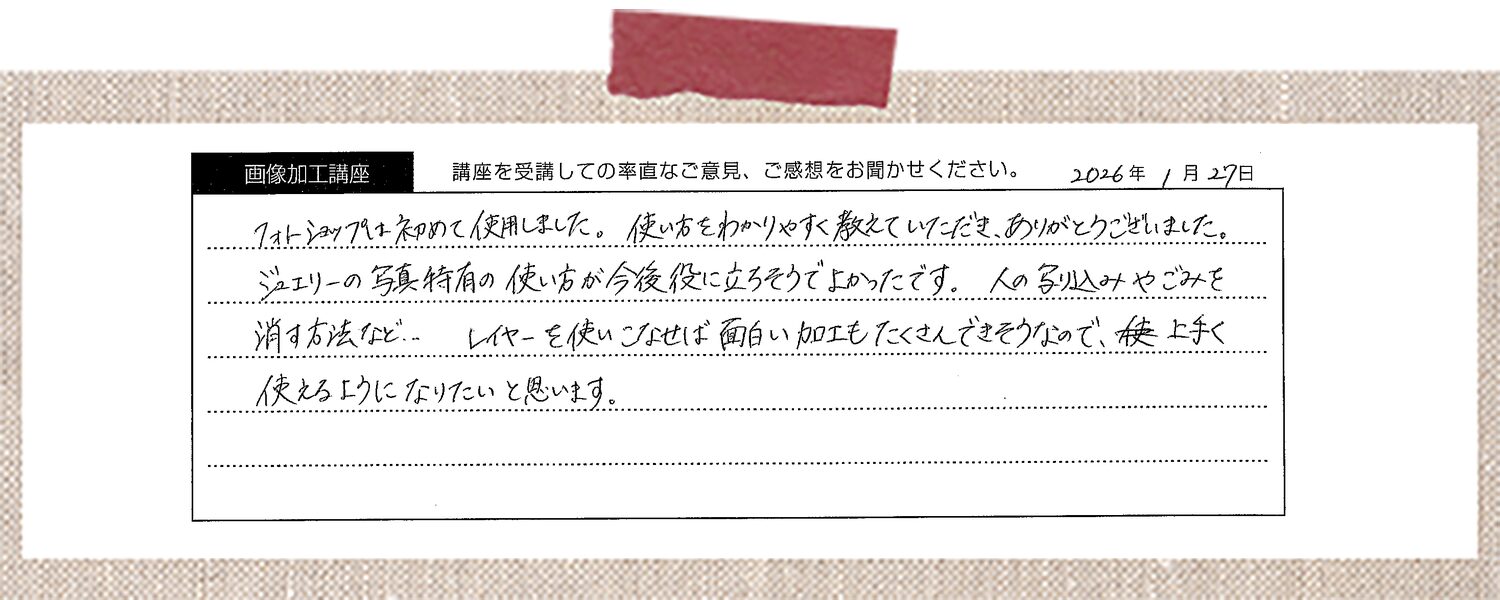 画像加工講座
講座を受講しての率直なご意見、ご感想をお聞かせください。 2026年 1月27日
フォトショップは初めて使用しました。 使い方をわかりやすく教えていただき、ありがとうございました。
ジュエリーの写真特有の使い方が今後役に立ちそうでよかったです。 人の写り込みやごみを
消す方法など… レイヤーを使いこなせば面白い加工もたくさんできそうなので、上手く
使えるようになりたいと思います。